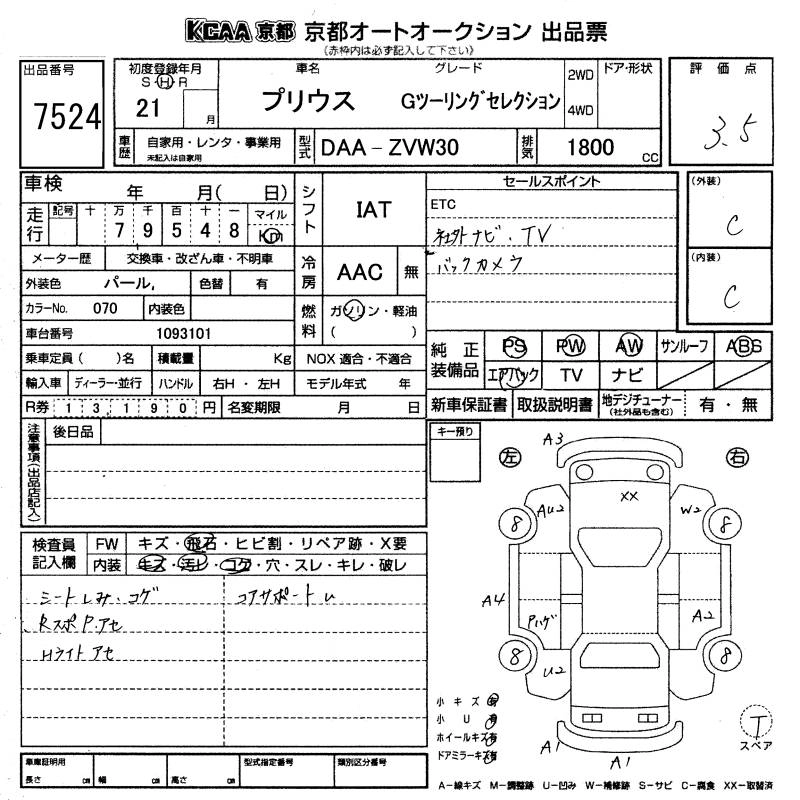 KCAA 京都 京都オートオークション 出品票
(赤枠内は必ず記入して下さい)
出品番号
7524
初度登録年月
S H R
21 月
車名
プリウス
グレード
Gツーリングセレクション
2WD
4WD
ドア・形状
評価点
3.5
車歴
自家用・レンタ・事業用
未記入は自家用
型式
DAA-ZVW30
排気
1800 cc
車検 年 月( 日)
走行
記号 十 万 千 百 十 一 マイル
7 9 5 4 8 Km
メーター歴 交換車・改ざん車・不明車
外装色 パール, 色替 有
カラーNo. 070 内装色
車台番号 1093101
乗車定員( )名 積載量 Kg
輸入車 ディーラー・並行 ハンドル 右H・左H
R券 1 3 1 9 0 円 名変期限 月 日
シフト IAT
冷房 AAC 無
燃料 ガソリン・軽油
( )
NOX 適合・不適合
モデル年式 年
セールスポイント
ETC
社外ナビ・TV
バックカメラ
(外装)
C
(内装)
C
純正装備品
PS PW AW サンルーフ ABS
エアバック TV ナビ
新車保証書 取扱説明書 地デジチューナー
(社外品も含む)
有・無
注意事項(出品店記入)
後日品
キー預り
検査員記入欄
FW キズ・飛石・ヒビ割・リペア跡・X要
内装 キズ・汚レ・コゲ・穴・スレ・キレ・破レ
シートしみ・コゲ
コアサポートU
RスポP.アセ
Hライトアセ
左
右
A3
XX
AU2
W2
8
8
A4
Pハゲ
A2
8
8
U2
A1
A1
小キズ 有
小U 有
ホイールキズ 有
ドアミラーキズ 有
T
スペア
車庫証明用
長さ cm 幅 cm 高さ cm
型式指定番号
類別区分番号
A-線キズ M-調整跡 U-凹み W-補修跡 S-サビ C-腐食 XX-取替済